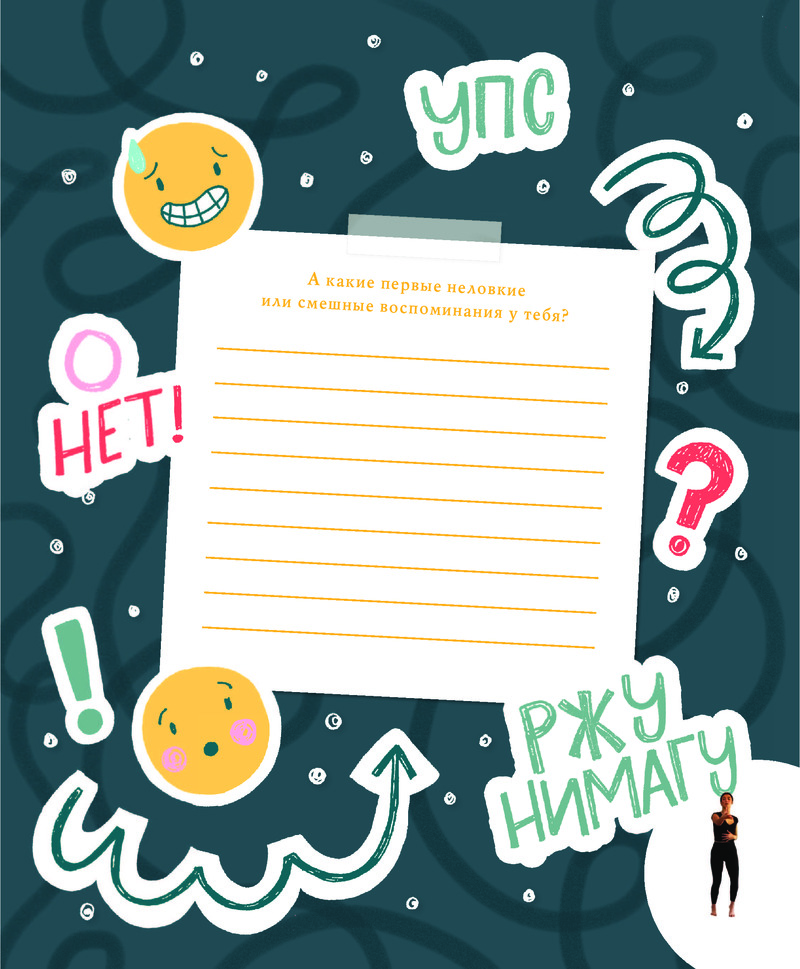 УПС
А какие первые неловкие
или смешные воспоминания у тебя?
О
НЕТ!
?
!
РЖУ
НИМАГУ